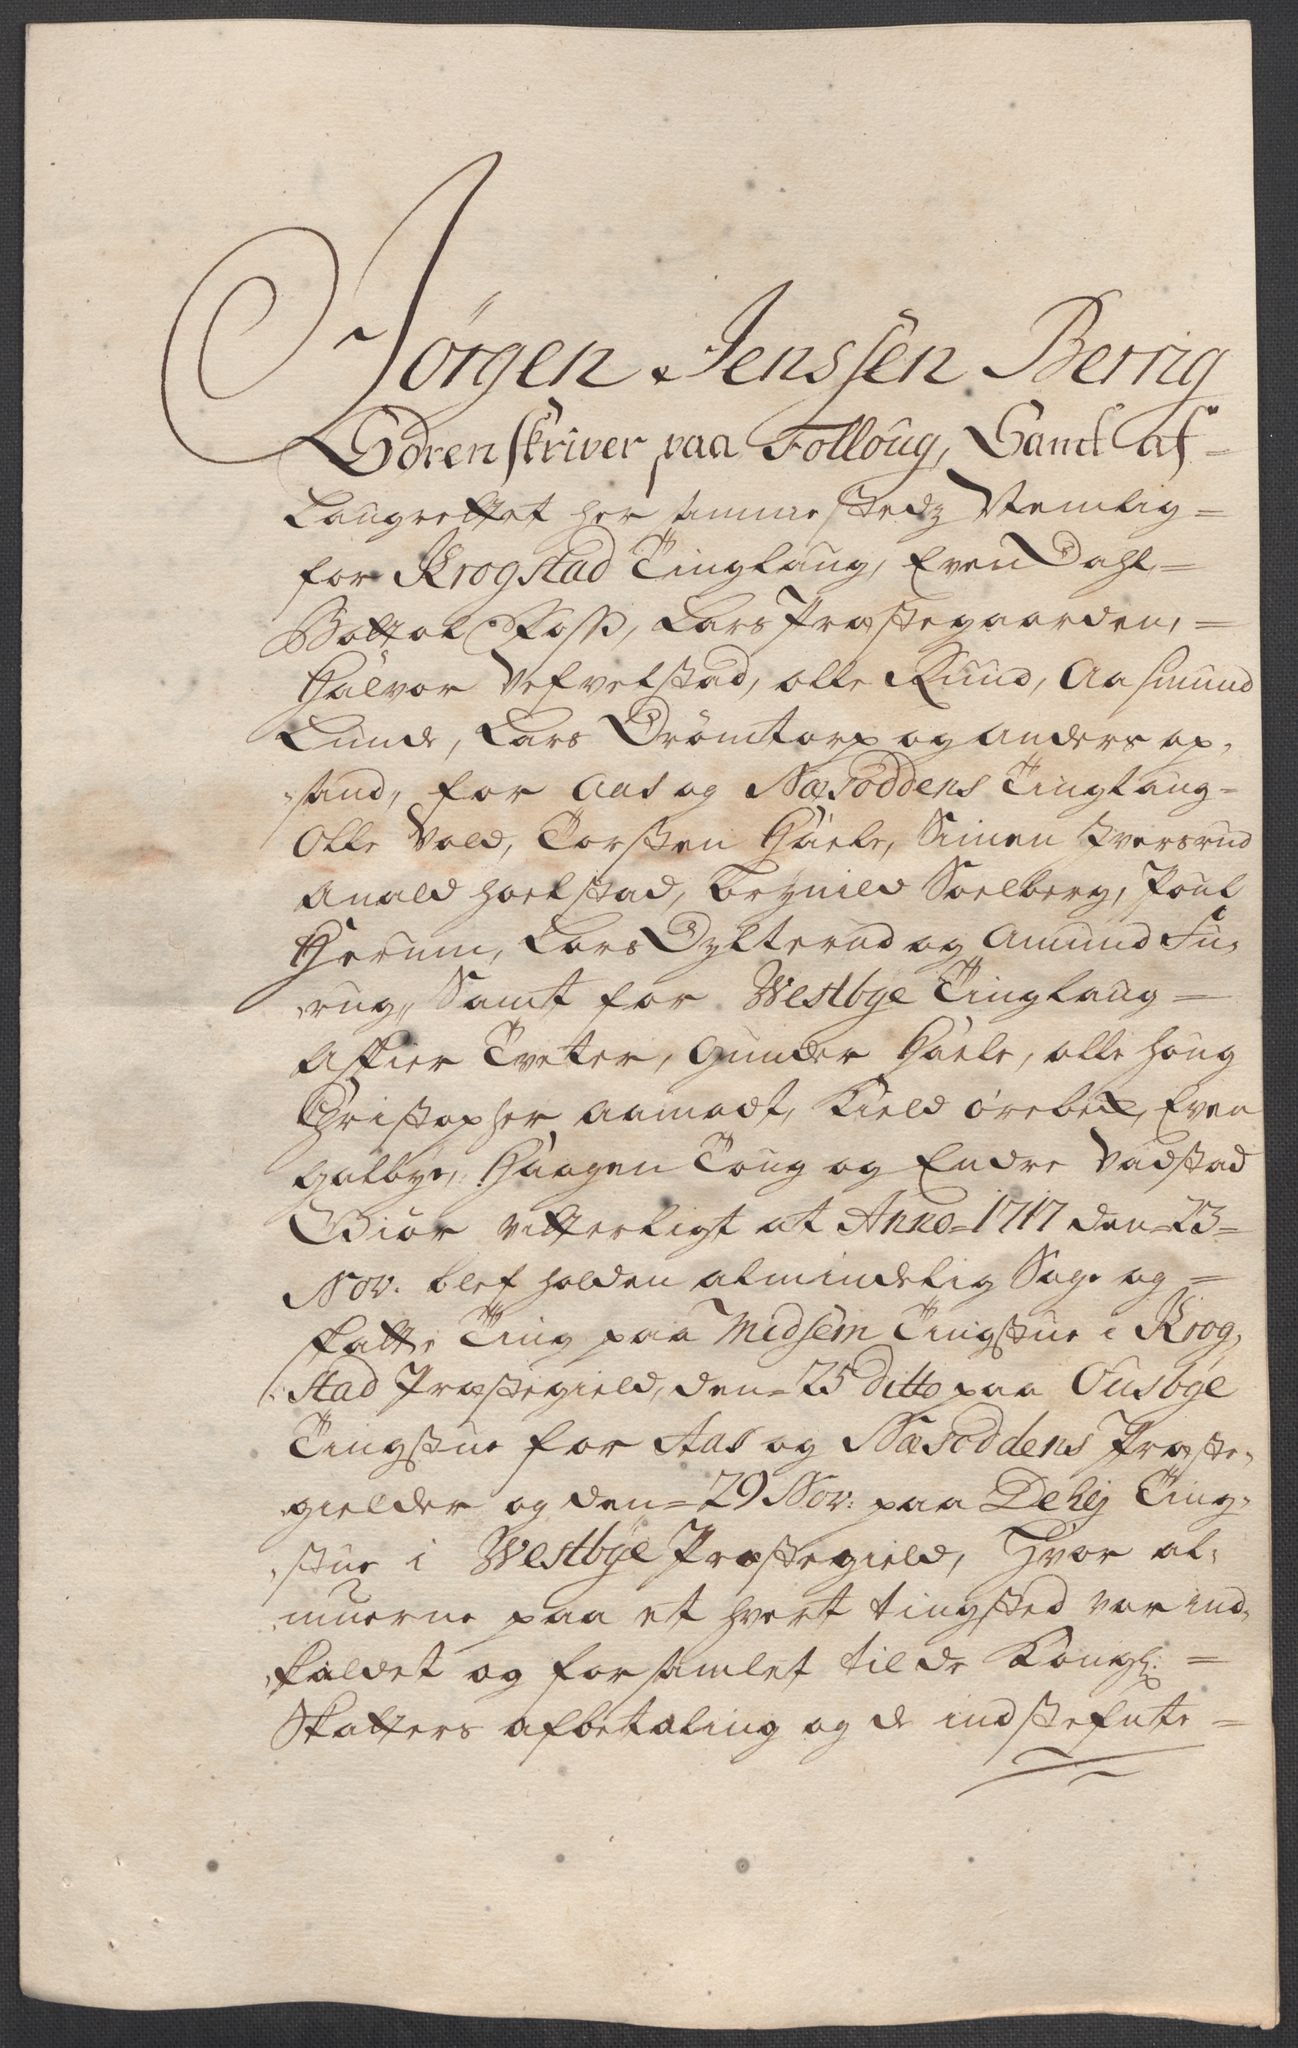 Jørgen Jenssen Berrig
Sorenskriver paa Folloug, Samt af-
Laugrettet her sammestedz Nemlig =
for Krogstad Tinglaug, Even Dahl, =
Bottol Foss, Lars Præstegaarden, =
Halvor Vefvelstad, olle Ruud, Aasmund
Lunde, Lars Drömtorp og anders op,
sand, for Aas og Næsoddens Tinglaug =
Olle Vold, Torsten Haele, Simen Iversrud
Anald Holstad, Brynild Soelberg, Poul
Gerum, Lars Dylterud og Amund Fu,
rug, Samt for Westbye Tinglaug =
Asker Tveter, Gunder Haele, olle Houg
Christopher Aamodt, Kield örebek, Even
galbye, Haagen Toug og Endre Vadstad
Giör vitterligt at Anno = 1717 den = 23 =
Nov. blef holden almindelig Sage og =
skatte Ting paa Midsem Tingstue i Krog,
stad Præstegield, den = 25 Ditto paa Ousbye
Tingstue for Aas og Næsoddens Præste,
gielder og den = 29 Nov: paa Dehlj Ting,
stue i Westbye Præstegield, Hvor al,
muerne paa et hvert tingsted var ind,
kaldet og forsamlet til de Kongl: =
Skatters afbetaling og de indstefnte =